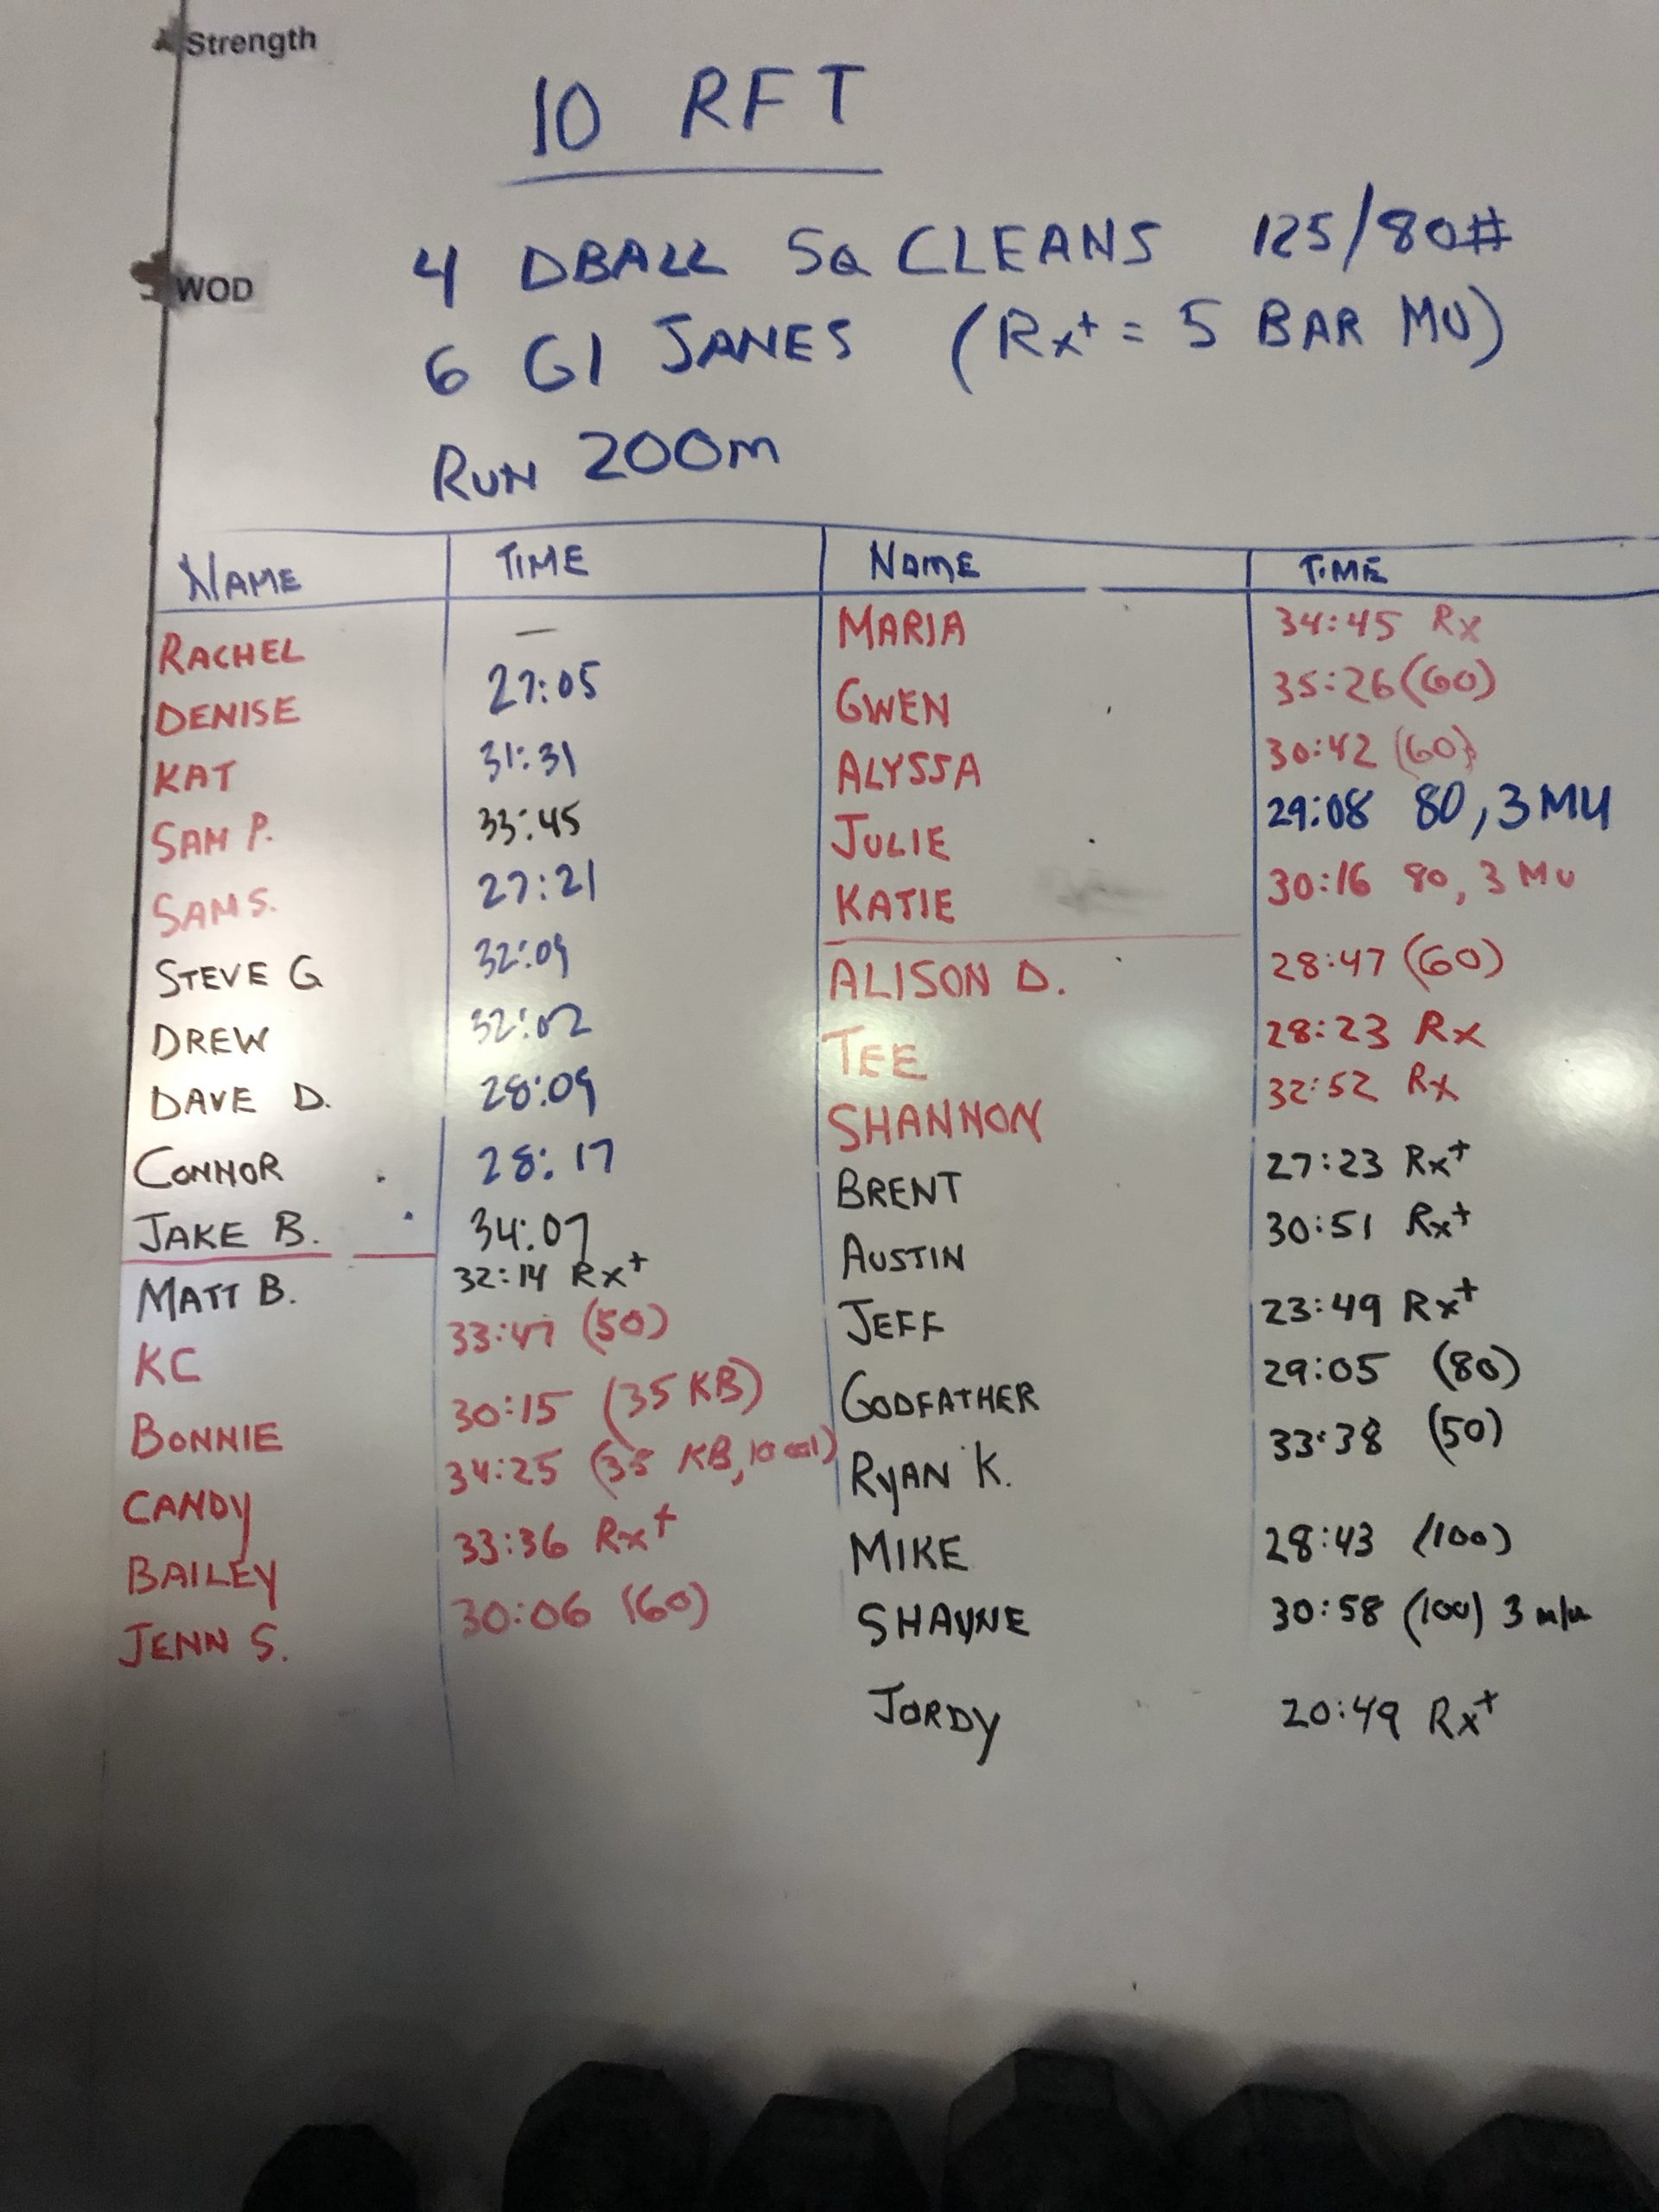 Strength
10 RFT
WOD
4 DBALL SQ CLEANS 125/80#
6 GI JANES (Rx+ = 5 BAR MU)
RUN 200m
NAME TIME NAME TIME
RACHEL — MARIA 34:45 Rx
DENISE 27:05 GWEN 35:26 (60)
KAT 31:31 ALYSSA 30:42 (60)
SAM P. 33:45 JULIE 29:08 80, 3 MU
SAM S. 27:21 KATIE 30:16 80, 3 MU
STEVE G 32:09 ALISON D. 28:47 (60)
DREW 32:02 TEE 28:23 Rx
DAVE D. 28:09 SHANNON 32:52 Rx
CONNOR 28:17 BRENT 27:23 Rx+
JAKE B. 34:07 AUSTIN 30:51 Rx+
MATT B. 32:14 Rx+ JEFF 23:49 Rx+
KC 33:47 (50) GODFATHER 29:05 (80)
BONNIE 30:15 (35 KB) RYAN K. 33:38 (50)
CANDY 34:25 (35 KB, MIKE 28:43 (100)
BAILEY 33:36 Rx+ SHAYNE 30:58 (100) 3
JENN S. 30:06 (60) JORDY 20:49 Rx+